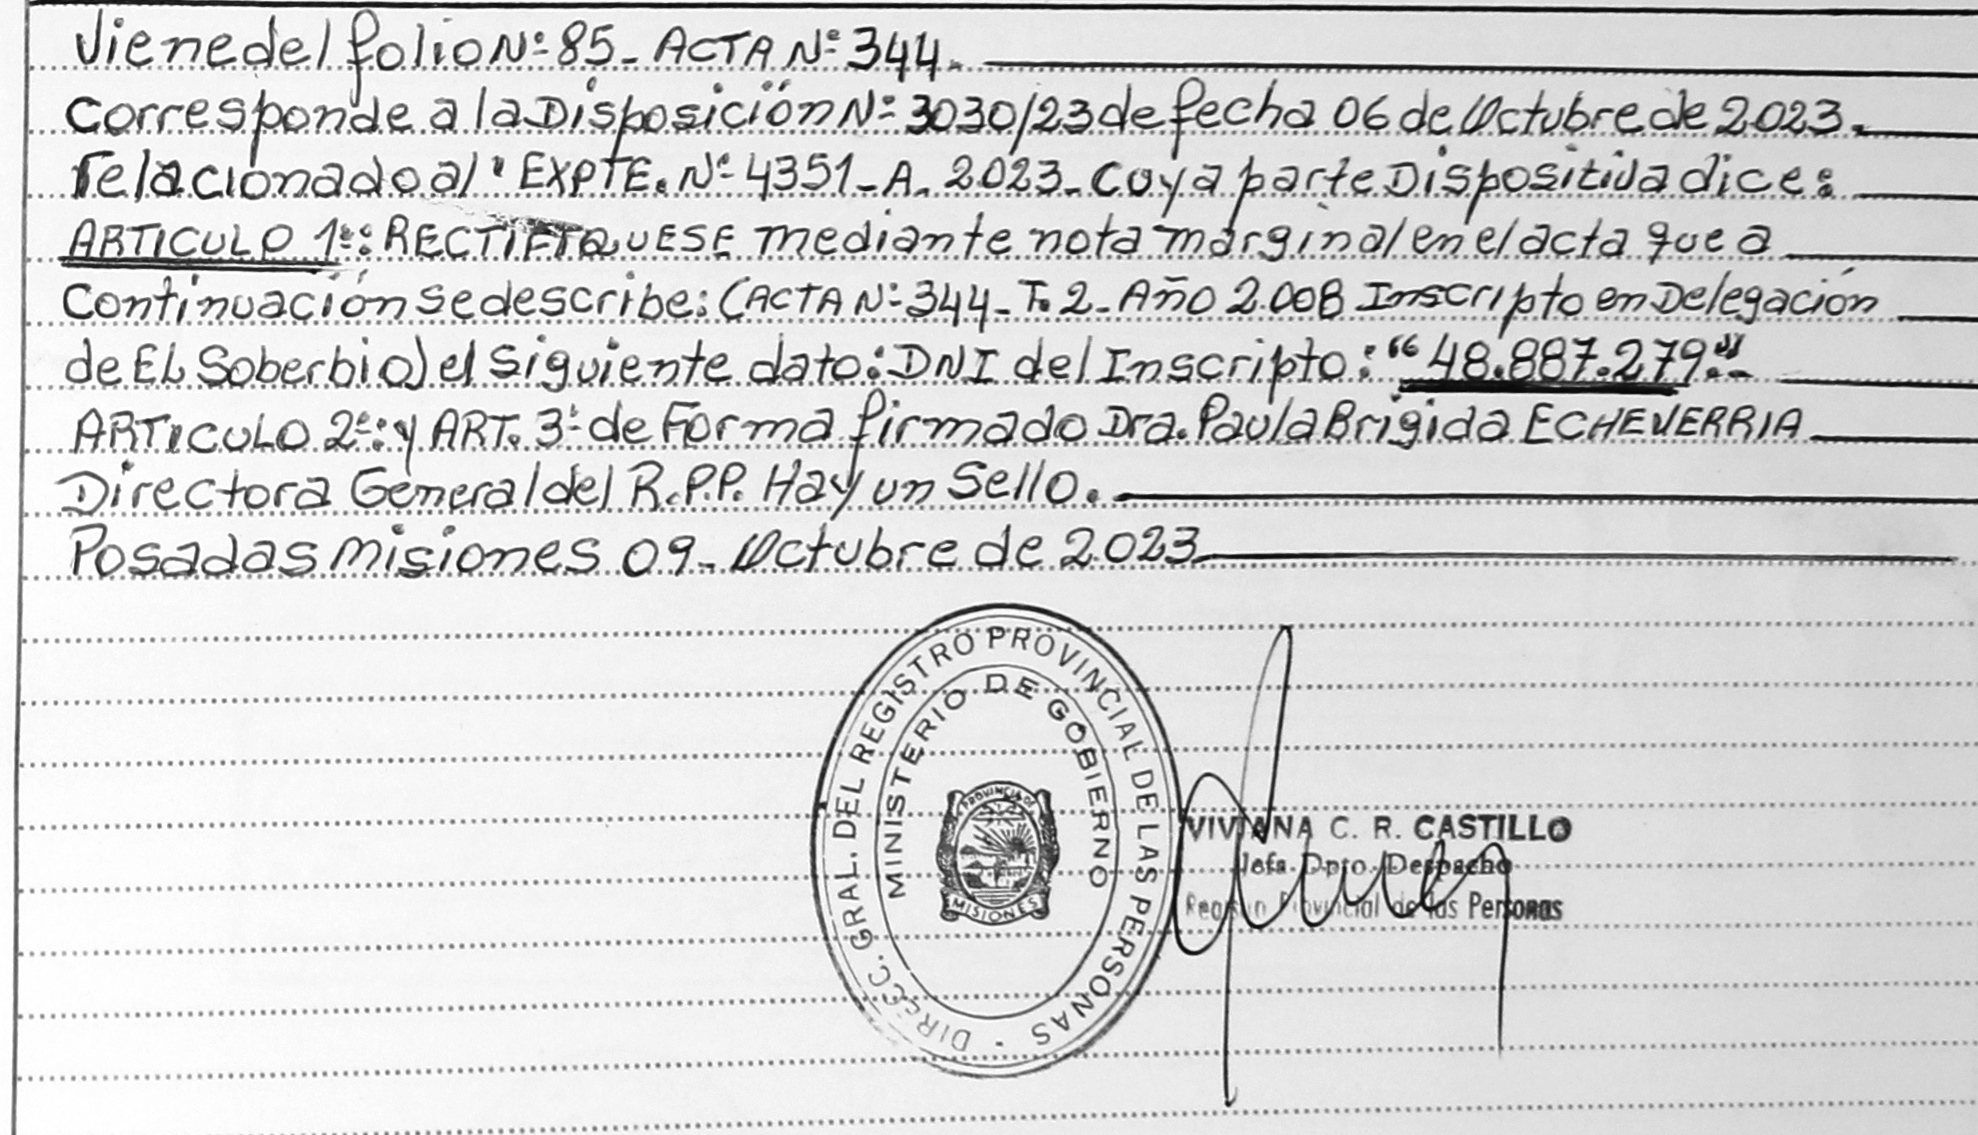 Viene del folio Nº 85 - ACTA Nº 344.
Corresponde a la Disposición Nº 3030/23 de fecha 06 de Octubre de 2.023.
relacionado al EXPTE. Nº 4351-A-2.023- Cuya parte Dispositiva dice:
ARTICULO 1º: RECTIFIQUESE mediante nota marginal en el acta que a
Continuación se describe: (ACTA Nº 344 - T. 2 - Año 2.008 Inscripto en Delegación
de EL Soberbio) el siguiente dato: DNI del Inscripto: "48.887.279."
ARTICULO 2º: y ART. 3º de Forma firmado Dra. Paula Brigida ECHEVERRIA
Directora General del R.P.P. Hay un Sello.
Posadas Misiones 09 - Octubre de 2.023
DIRECC. GRAL. DEL REGISTRO PROVINCIAL DE LAS PERSONAS
MINISTERIO DE GOBIERNO
PROVINCIA DE
MISIONES
VIVIANA C. R. CASTILLO
Jefa Dpto. Despacho
Registro Provincial de las Personas